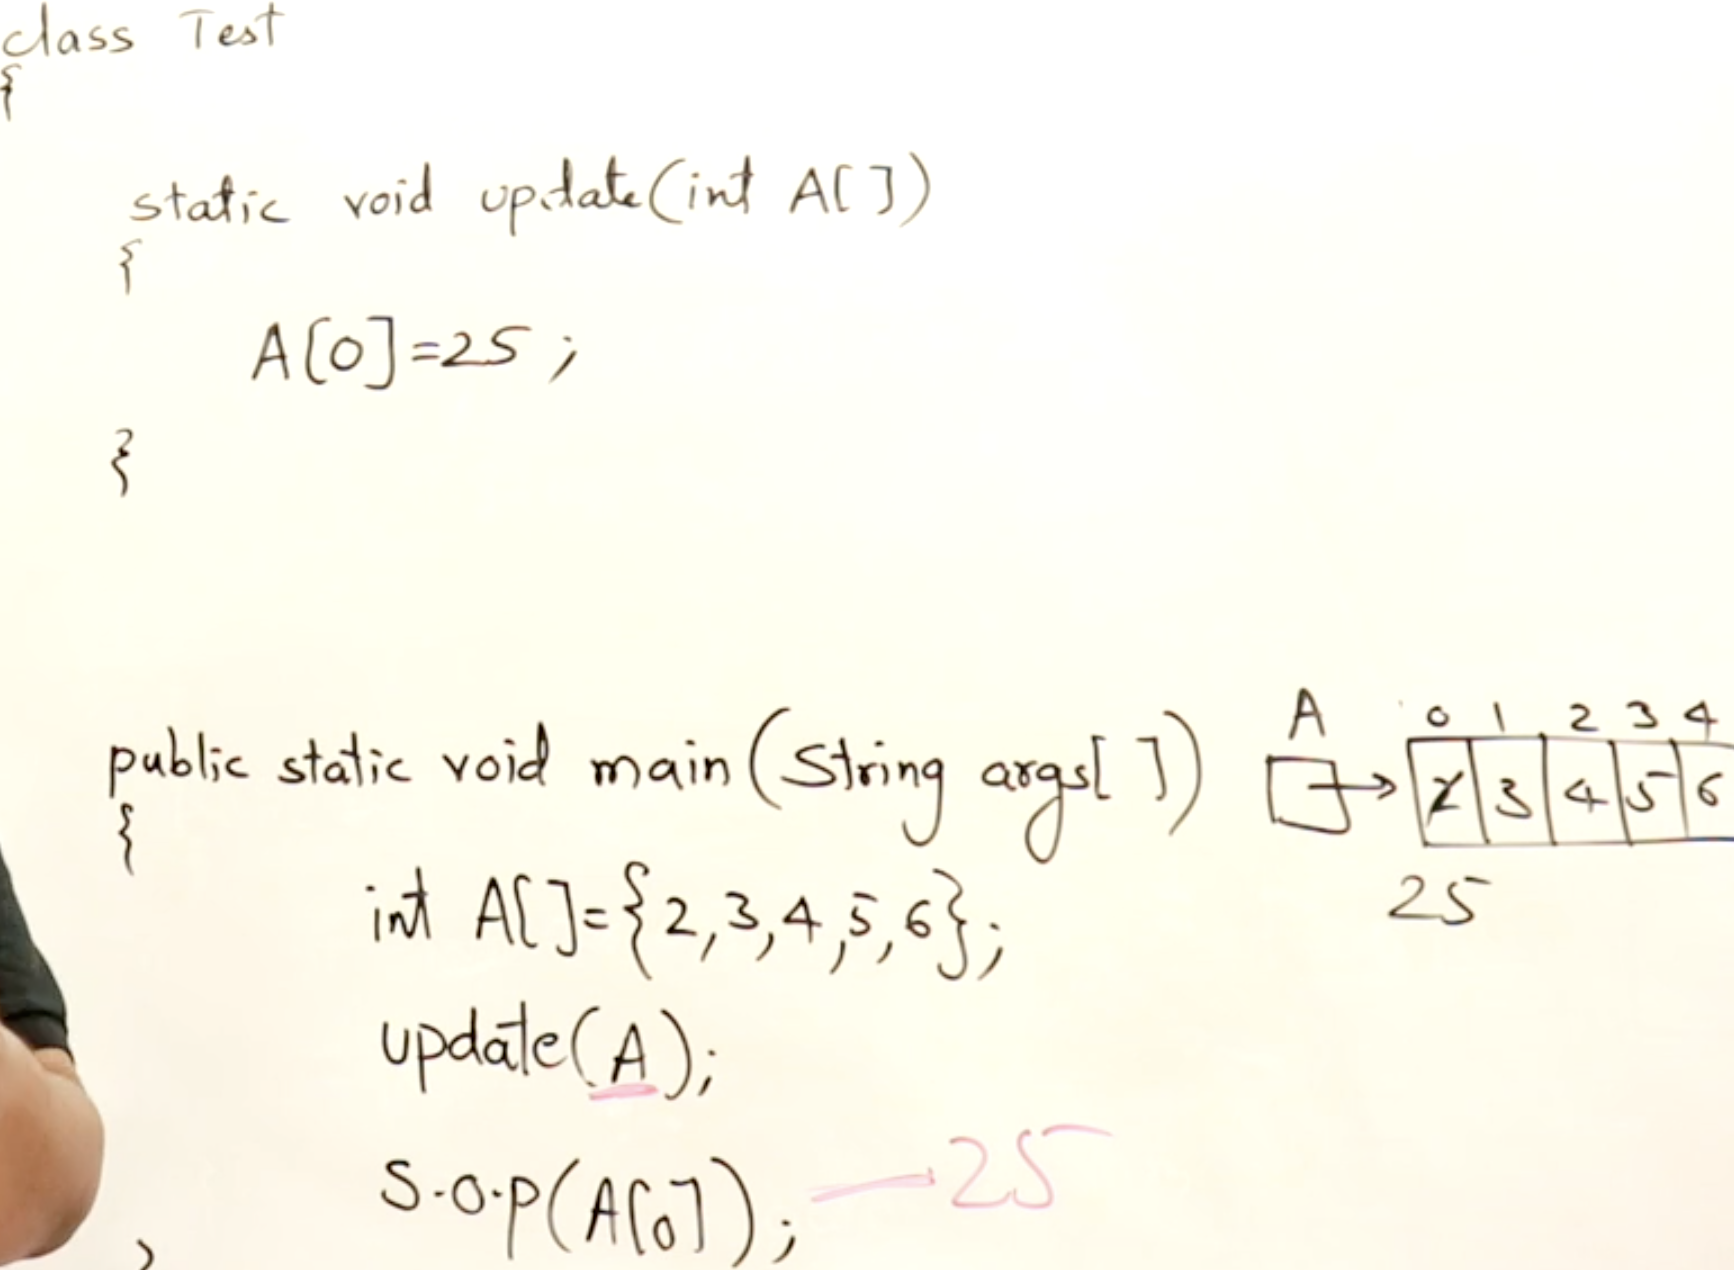 class Test
{
static void update(int A[])
{
A[0]=25;
}
public static void main(String args[])
{
int A[]={2,3,4,5,6};
update(A);
S.O.P(A[0]); —25
}
A
0 1 2 3 4
2 3 4 5 6
25